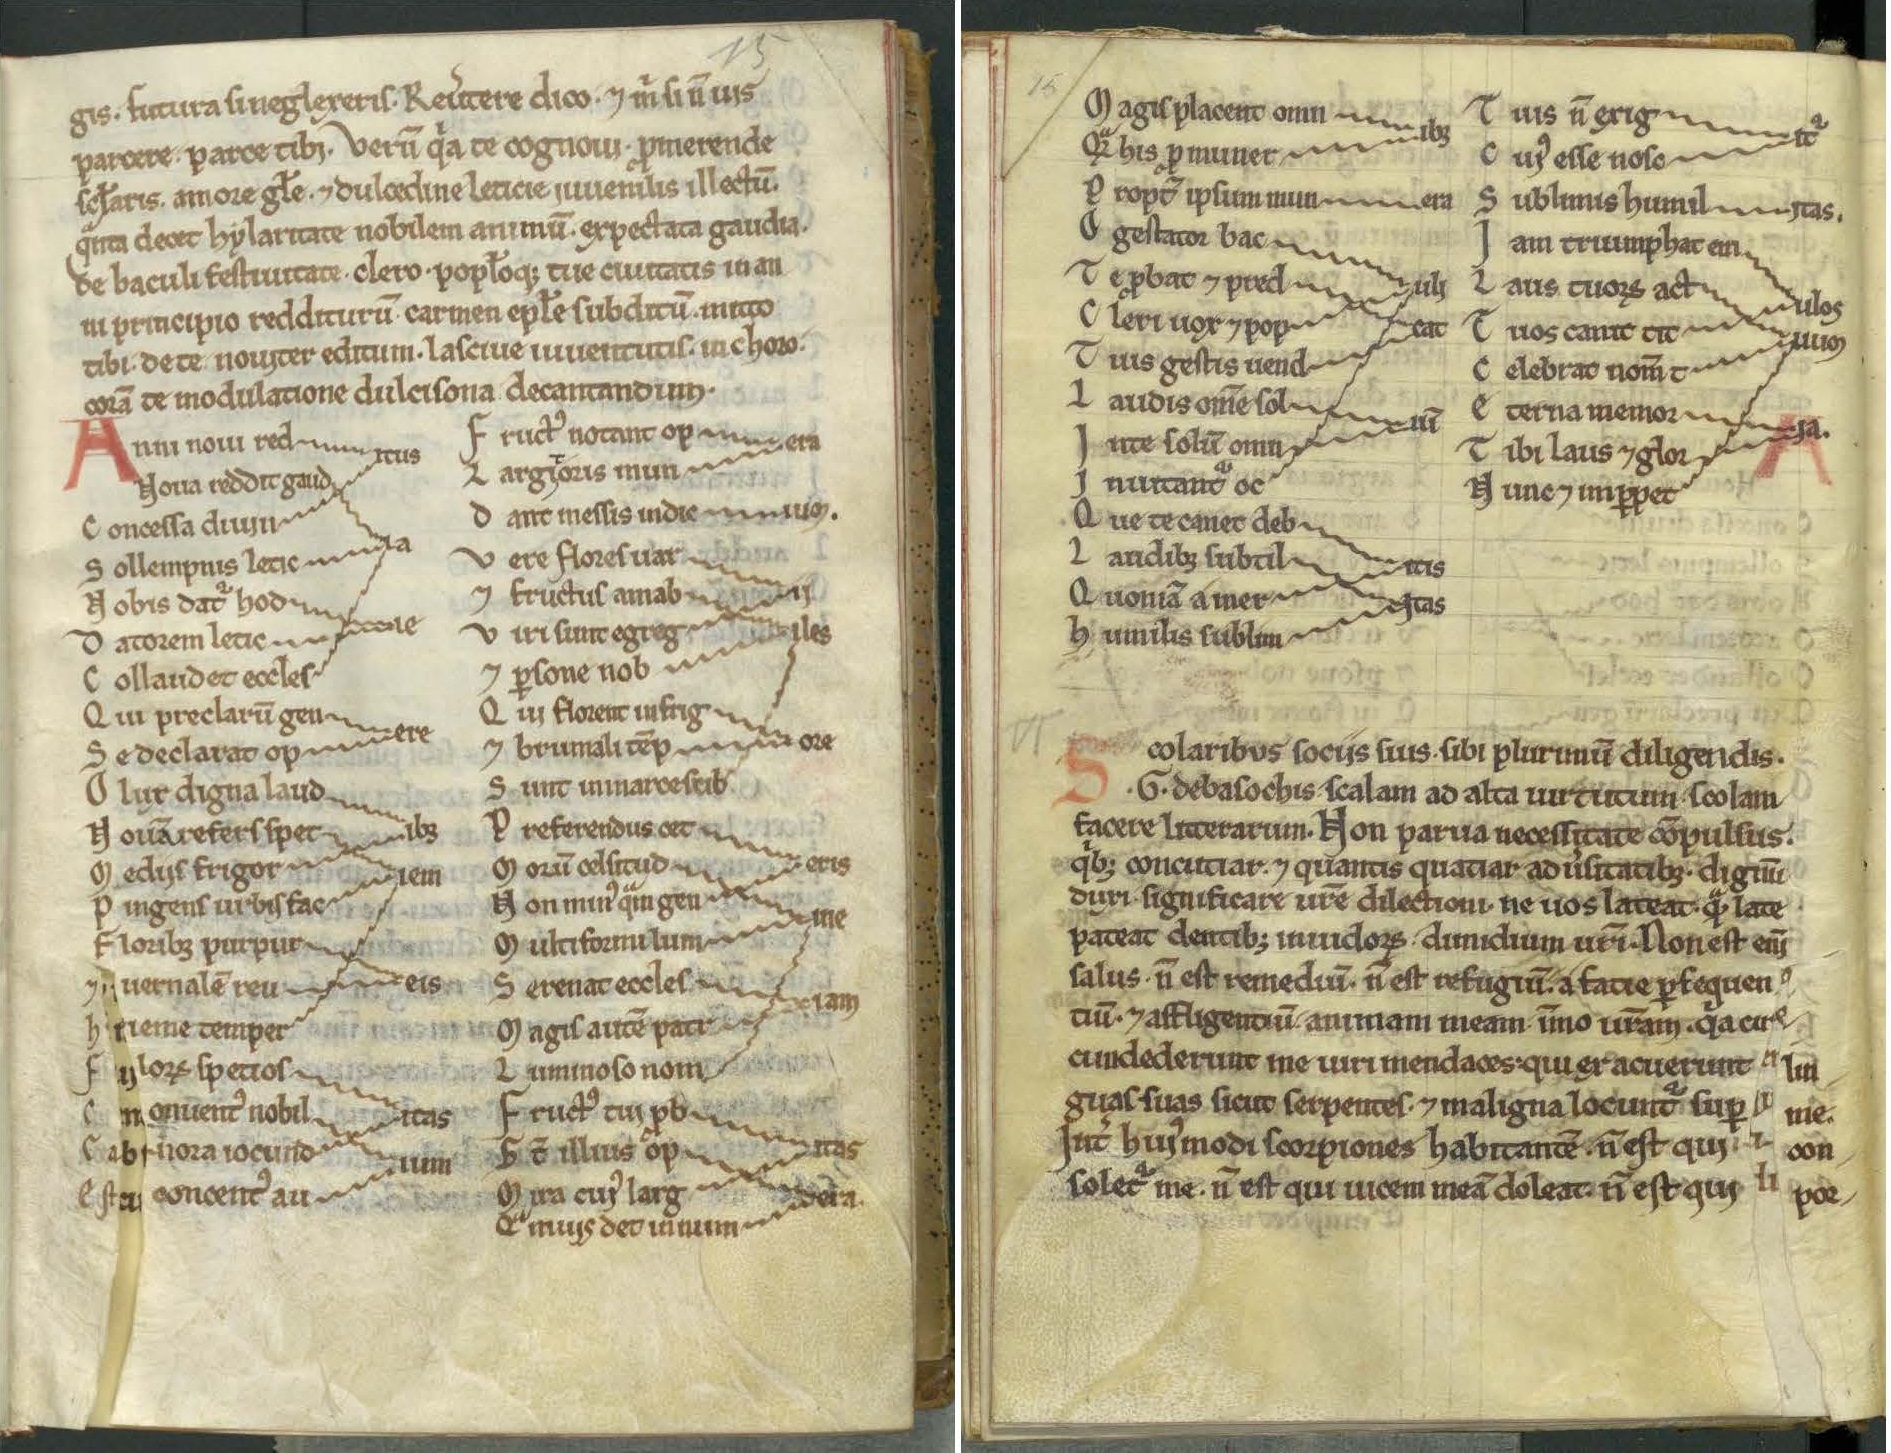 15
gis. futura si neglexeris. Reùtere dico. ⁊ m̃ si ñ uis
parcere. parce tibi. Verũ q̃a te cognoui. ꝓmerende
amore gl̃e. ⁊ dulcedine leticie iuuenilis illectũ.
decet hylaritate nobilem animũ. expectata gaudia.
de baculi festiuitate. clero. popl̃oq; tue ciuitatis in an
ni principio redditurũ. carmen epl̃e subditũ. mitto
tibi. de te nouiter editum. lasciue iuuentutis. in choro.
corã te modulatione dulcisona decantandum.
Anni noui red itus
Noua reddit gaud
Concessa diuin
Sollempnis letic ia
Nobis dat̃ hod
Datorem letic
Collaudet eccles
Qui preclarũ gen
Se declarat op ere
O lux digna laud
Nouã refers spet ibꝫ
Medijs frigor iem
Pingens urbis fac
Floribꝫ purpur
⁊ uernalẽ reu eis
hieme temper
spetios
nobil itas
nora iocund ium
concent⁹ au
Fruct⁹ notant op era
Largioris mun
Dant messis indie uum.
Vere flores uar
⁊ fructus amab ij
Viri sunt egreg iles
⁊ ꝑsone nob
Qui florent in frig
⁊ brumali tẽp ore
Sunt inmarcescib
Preferendus cet eris
Morũ celsitud
Non min⁹ quã in gen ine
Multiformi lum
Serenat eccles iam
Magis autẽ patr
Luminoso nom
Fruct⁹ tui ꝓb
illius op itas
Mira cui⁹ larg
det in num era.
15
Magis placent omn ibꝫ
his ꝓ muner
Propt̃ ipsum mun era
O gestator bac
Te ꝓbat ⁊ pred uli
Cleri uox ⁊ pop cat
Tuis gestis uend
Laudis om̃e sol
In te solũ omn iũ
Inuitant oc
Que te canet deb
Laudibꝫ subtil itis
Quoniã a mer itas
humilis sublim
Tuis ñ erig it̃
Cui⁹ esse nosc
Sublimis humil itas.
Jam triumphat em
Laus tuoꝝ act ulos
Tuos canit tit uum
Celebrat nom̃ t
Eterna memor ia.
Tibi laus ⁊ glor
Nunc ⁊ in ꝑpet
Scolaribus socijs suis. sibi plurimũ diligendis.
.G. de basochis scalam ad alta uirtutum scolam
facere litterarum. Non parua necessitate cõpulsus.
q̃b; concutiar. ⁊ quantis quatiar aduersitatibꝫ. dignũ
duxi significare ur̃e dilectioni. ne uos lateat. q̃ late
pateat dentib; inuidoꝝ. dimidium ur̃i. Non est eni͂
salus. ñ est remediũ. ñ est refugiũ. a facie ꝑsequen
tiũ. ⁊ affligentiũ animam meam. im̃o ur̃am. q̃a cir
cumdederunt me uiri mendaces. qui exacuerunt lin
guas suas sicut serpentes. ⁊ maligna locunt̃ sup me.
Int̃ hui⁹modi scorpiones habitantẽ. ñ est qui con
solet̃ me. ñ est qui uicem meã doleat. ñ est qui por